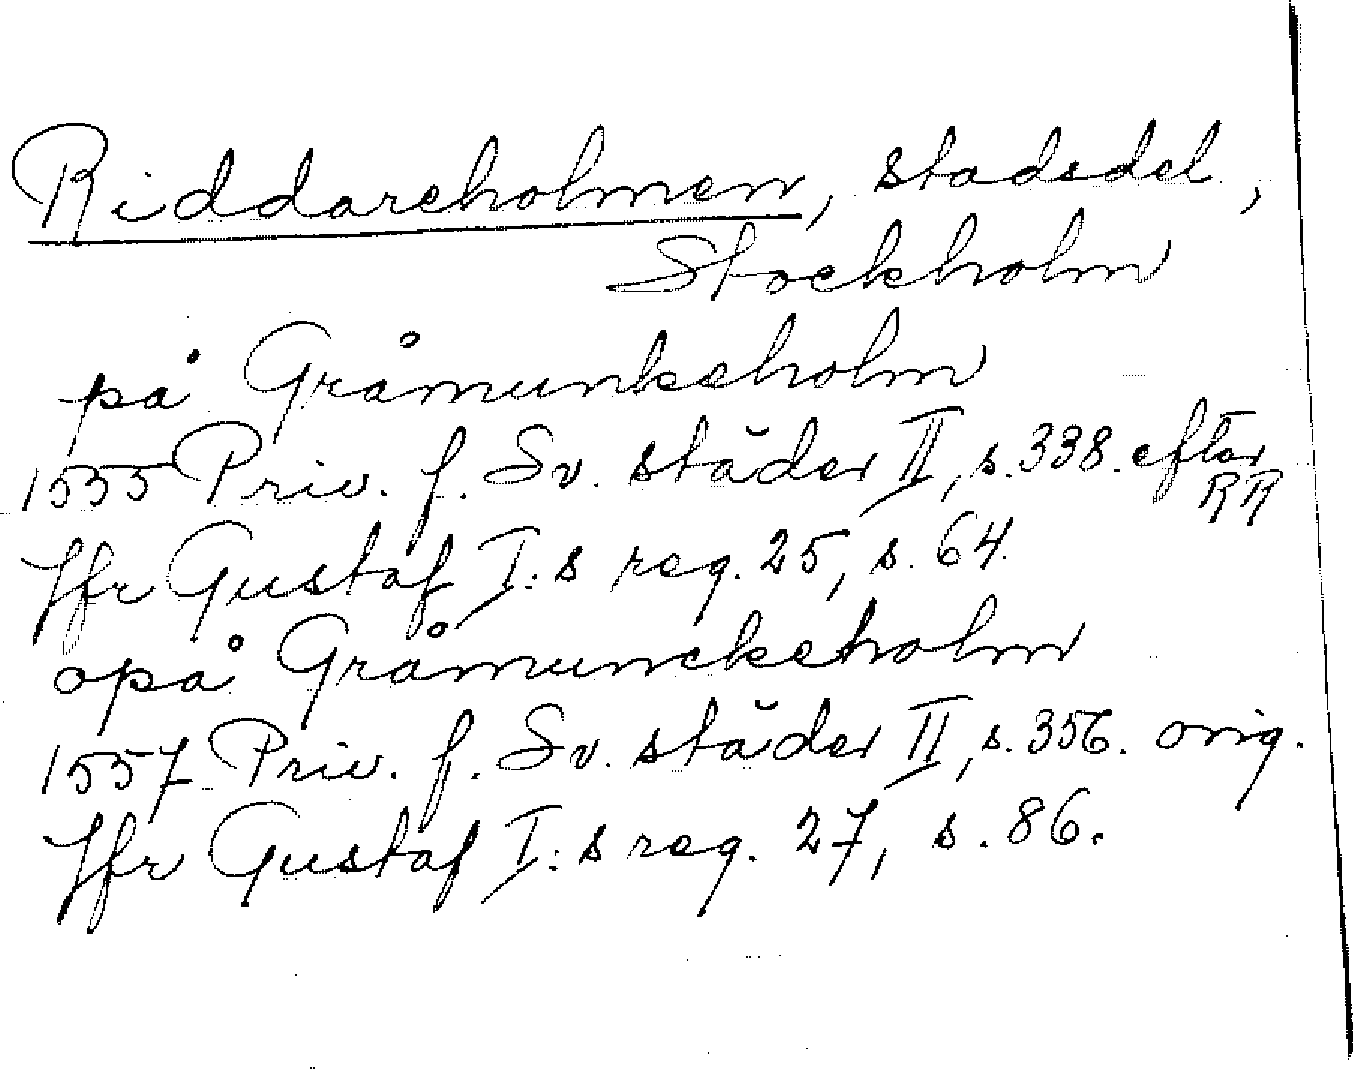 Riddareholmen, stadsdel,
Stockholm
på Gråmunkeholm
1555 Priv. f. Sv. städer II, s. 338. efter
RR
Jfr Gustaf I:s reg. 25, s. 64.
opå Gråmunckeholm
1557 Priv. f. Sv. städer II, s. 356. orig.
Jfr Gustaf I:s reg. 27, s. 86.